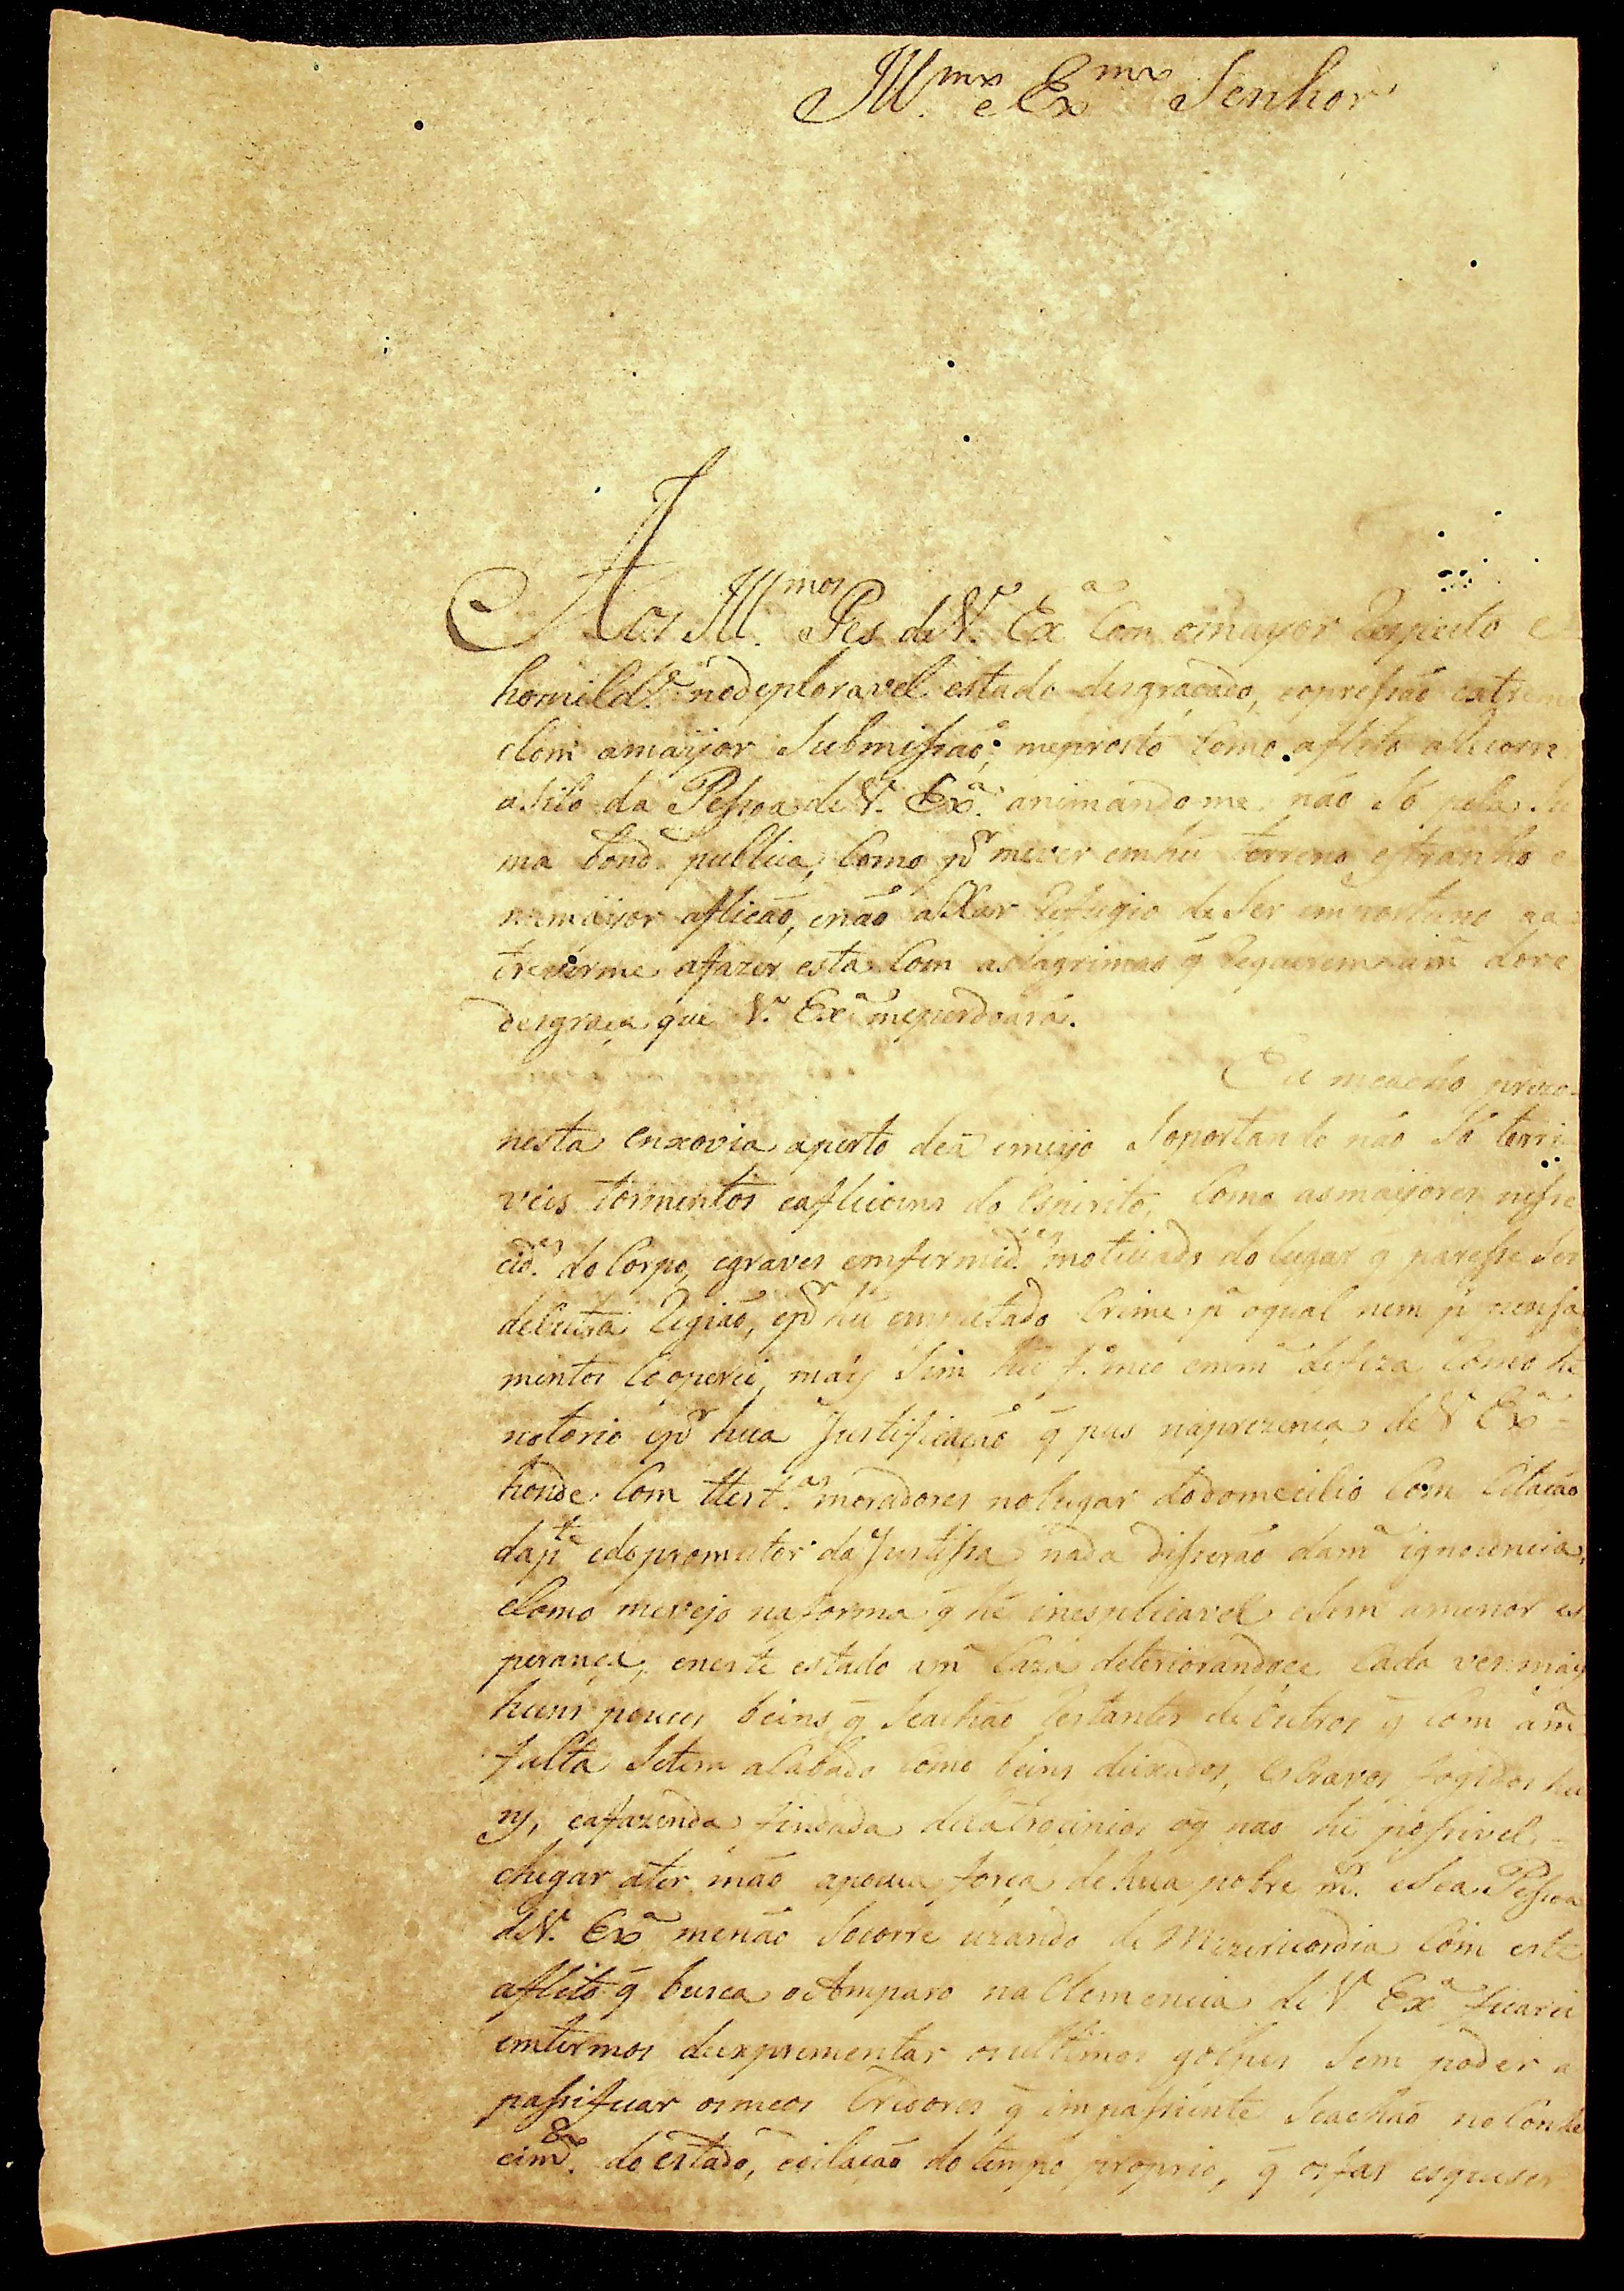 Ill.mo e Ex.mo Senhor
Aos Ill.mos Pes de V. Ex.a Com omayor Respeito e
homild.e nodeploravel estado desgraçado, eopressão extrem
eCom amayor Submissaõ; meprosto Como aflito aSicorre
aSilo da Pessoa de V. Ex.a animandome não Só pela Su
ma bond.e publica, Como p.r mever emhũ terreno estranho e
namayor aflicão, enão aXar Refugio de Ser importuno aa
treverme afazer esta Com aslagrimas q̃ Requerem am.a dor e
desgraça que V. Ex.a meperdoará.
Eu meacho prezo
nesta enxovia aperto deã emeyo Soportando não Só terri
veis tormentos eafliçoens do Espirito, Como asmayores nesse
cid.es do Corpo, egraves emfermid.es motivads do lugar q̃ paresse Ser
deoutra Região, ep.r hũ emputado Crime p.a oqual nem p.r pensa
mentos Cooperei, may Sim hũ f.o meo emm.a defeza Como he
notorio ep.r hua Justificação q̃ pus naprezença de V. Ex.a
honde Com ttest.as moradores nolugar dodomecilio Com Citacão
dap.te edopromutor daJustissa nada disserão dam.a ignocencia,
eComo mevejo naforma q̃ hé inesplicavel eSem amenor es
perança, eneste estado am.a Caza deteriorandoce Cada ves may
huns poucos beins q̃ Seachão Restantes de outros q̃ Com am.a
falta Setem aCabado Como beins deixados, esCravos fogidos hu
ns, eafazenda findada delatrocinios oq̃ nao hé possivel
chegar ater mão apouca força de hua pobre m.er eSea Pessoa
deV. Ex.a menão Socorre uzando de Mizericordia Com este
aflito q̃ busca oAmparo na Clemencia de V. Ex.a ficarei
emtermos deexprementar osultimos golpes Sem poder a
passificar osmeos Credores q̃ impassiente Seachão no Conhe
cim.to do estado, edilação do tempo proprio, q̃ osfas esqueser